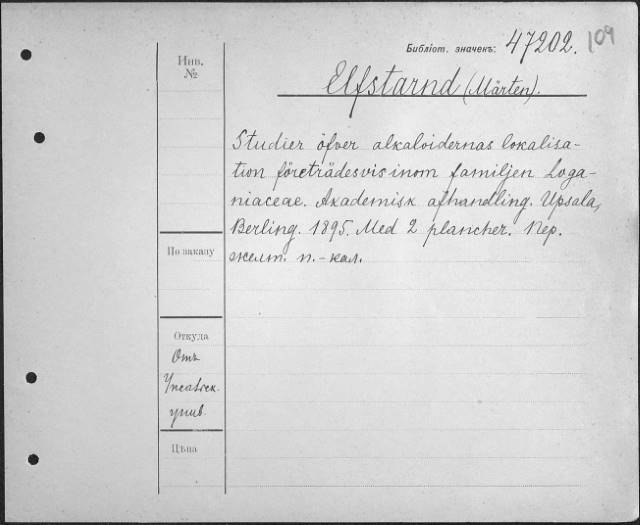 Библіот. значекъ: 47202. 109
Инв.
№
Elfstarnd (Märten).
Studier öfver alkaloidernas lokalisa-
tion företrädesvis inom familjen Loga-
niaceae. Akademisk afhandling. Upsala,
Berling. 1895. Med 2 plancher. Пер.
желт. п.-кал.
По заказу
Откуда
Отъ
унив.
Цѣна